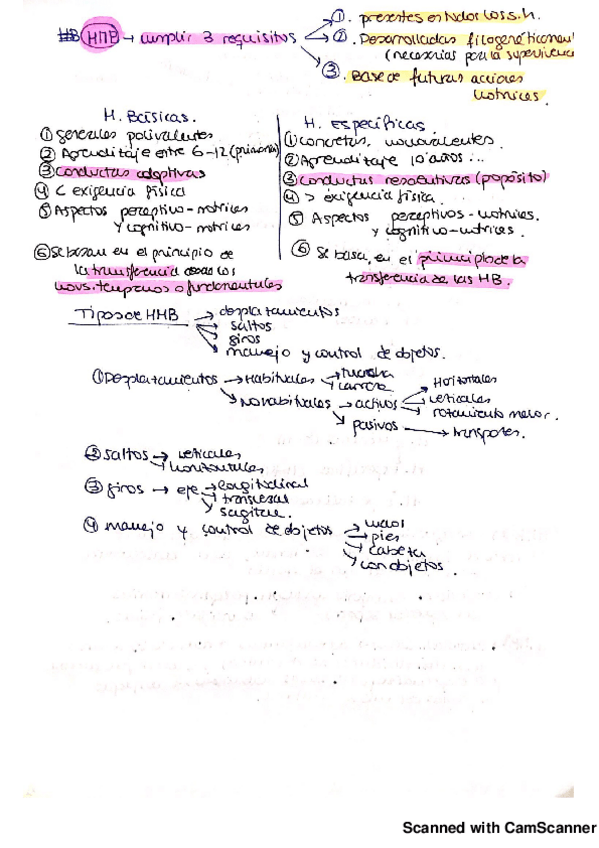 HB HMB → cumplir 3 requisitos → ①. presentes en todos los s.h.
②. Desarrolladas filogenéticament
(necesarias para la supervivencia
③. Base de futuras acciones
motrices.
H. Básicas.
① generales polivalentes
② Aprendizaje entre 6-12 (primaria)
③ conductas adaptivas
④ < exigencia física
⑤ Aspectos perceptivo-motrices
y cognitivo-motrices
⑥ Se basan en el principio de
la transferencia desde los
movs. tempranos o fundamentales
H. Específicas.
① concretas, monovalentes.
② Aprendizaje 10 años...
③ conductas resolutivas (propósito)
④ > exigencia física.
⑤ Aspectos perceptivos-motrices.
y cognitivo-motrices.
⑥ Se basa, en el principio de la
transferencia de las HB.
Tipos de HMB → desplazamientos
→ saltos
→ giros
→ manejo y control de objetos.
① Desplazamientos → Habituales → marcha
→ carrera
→ No habituales → activos → Horizontales
→ verticales
→ rozamiento menor.
→ pasivos → transportes.
② saltos → verticales
→ horizontales
③ giros → eje → longitudinal
→ transversal
→ sagital.
④ manejo y control de objetos → mano
→ pies
→ cabeza
→ con objetos.
Scanned with CamScanner